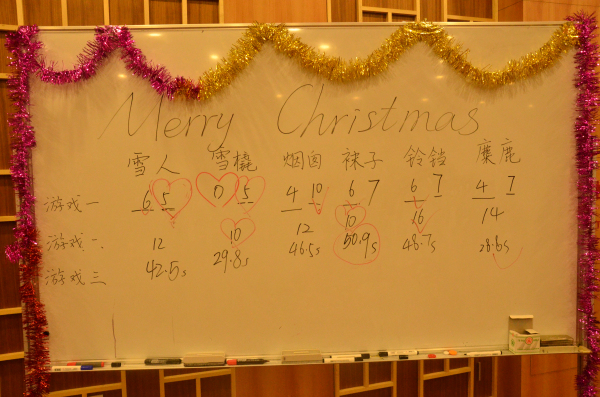 Merry Christmas
雪人 雪橇 烟囱 袜子 铃铛 麋鹿
游戏一 6 5 0 5 4 10 6 7 6 7 4 7
游戏二 12 10 12 10 16 14
游戏三 42.5s 29.8s 46.5s 50.9s 48.7s 28.6s